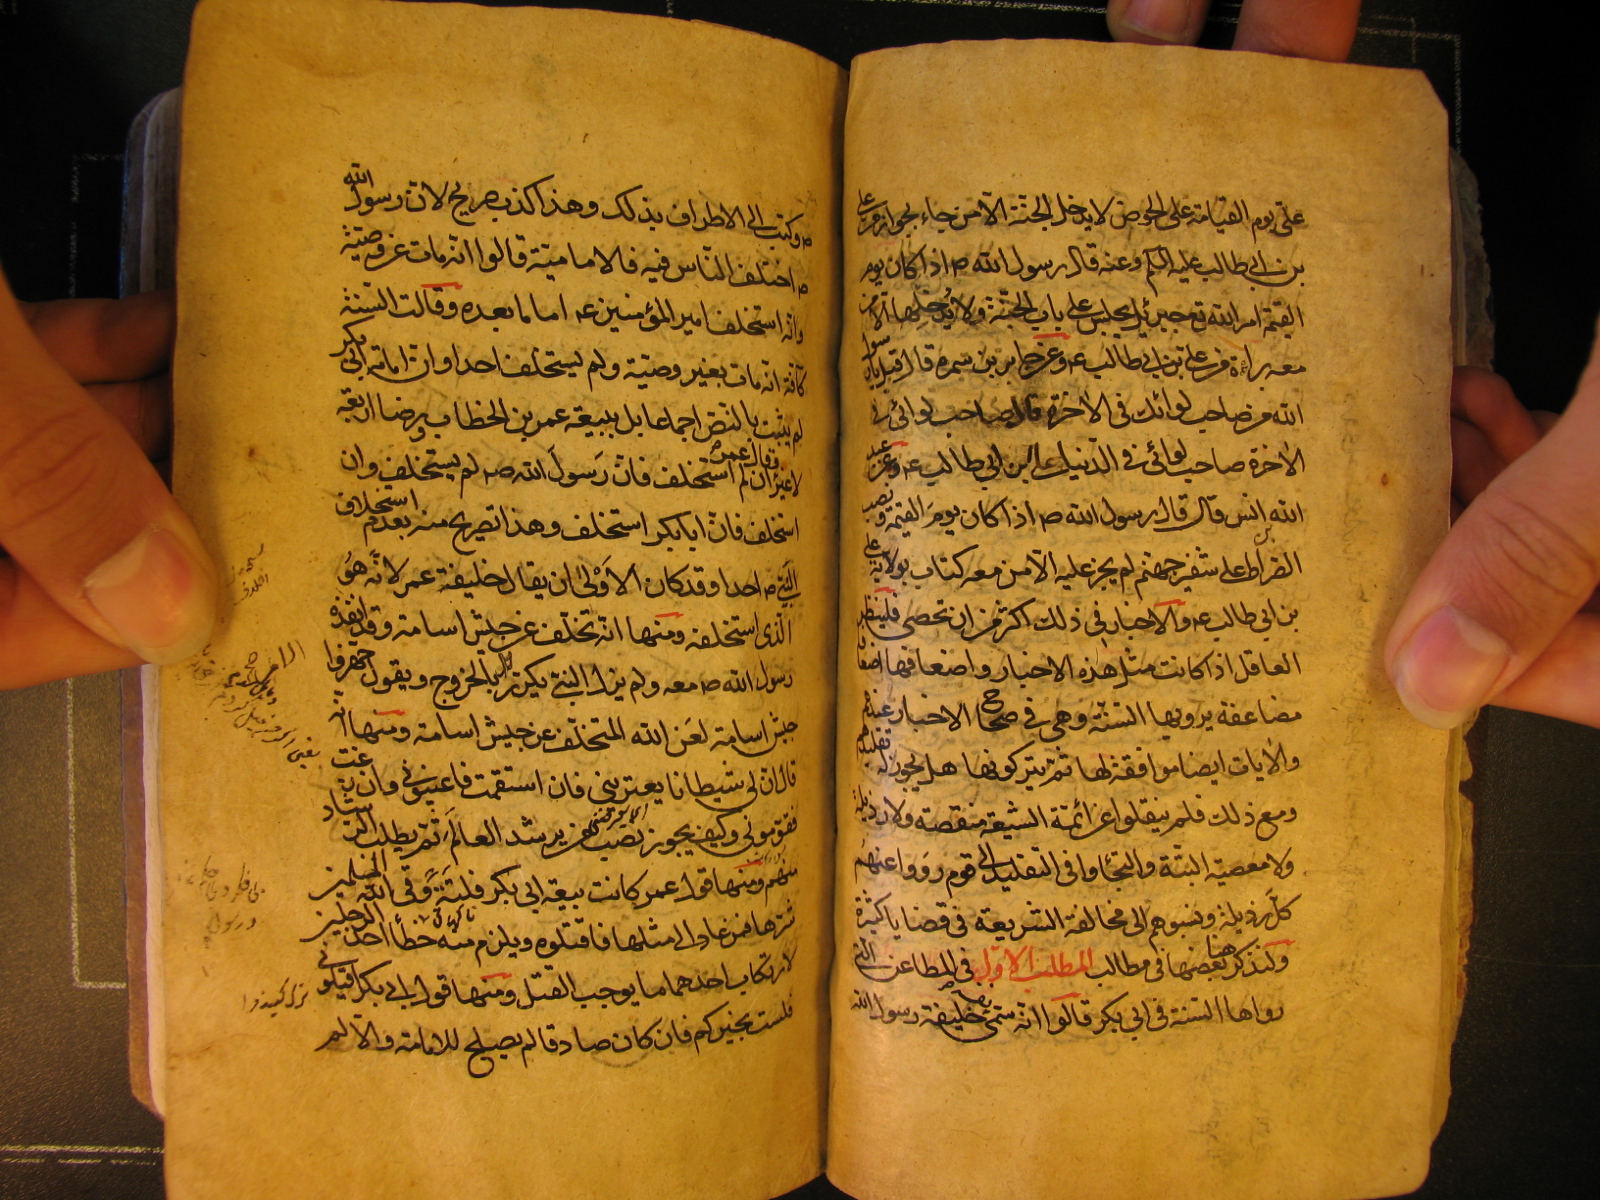 على يوم القيامة على الحوض لا يدخل الجنة الا من جاء بجواز من على
بن ابى طالب عليه السلم وعنه قال رسول الله ص اذا كان يوم
القيمة امر الله تع جبرئيل يجلس على باب الجنة ولا يدخلها الا من
معه براءة من على بن ابى طالب ع وعن جابر بن سمره قال قيل يا رسول
الله من صاحب لوائك فى الاخرة قال صاحب لوائى فى
الاخرة صاحب لوائى فى الدنيا على بن ابى طالب ع وعن عبد
الله بن انس قال قال رسول الله ص اذا كان يوم القيمة ونصب
الصراط على شفير جهنم لم يجز عليه الا من معه كتاب بولاية على
بن ابى طالب ع والاخبار فى ذلك اكثر من ان تحصى فلينظر
العاقل اذا كانت مثل هذه الاخبار واضعافها اضعافا
مضاعفة يرويها السنة وهى فى صحاح الاخبار عندهم
والآيات ايضا موافقة لها ثم يتركونها هل يجوز له تقليدهم
ومع ذلك فلم ينقلوا عن ائمة الشيعة منقصة ولا رذيلة
ولا معصية البتة والتجاوا فى التقليد الى قوم رووا عنهم
كل رذيلة ونسبوهم الى مخالفة الشريعة فى قضايا كثيرة
ولنذكر هنا بعضها فى مطالب المطلب الاول فى المطاعن التى
رواها السنة فى ابى بكر قالوا انه سمى نفسه خليفة رسول الله
ص وكتب الى الاطراف بذلك وهذا كذب صريح لان رسول الله
ص اختلف الناس فيه فالامامية قالوا انه مات عن وصية
وانه استخلف امير المؤمنين ع اماما بعده وقالت السنة
كافة انه مات بغير وصية ولم يستخلف احدا وان امامة ابى بكر
لم يثبت بالنص اجماعا بل ببيعة عمر بن الخطاب برضا اربعة
لا غير وقال عمر ان لم استخلف فان رسول الله ص لم يستخلف وان
استخلف فان ابا بكر استخلف وهذا تصريح منه بعدم استخلاف
النبى ص احدا وقد كان الاولى ان يقال خليفة عمر لانه هو
الذى استخلفه ومنها انه تخلف عن جيش اسامة وقد انفذه
رسول الله ص معه ولم يزل النبى يكرر الامر بالخروج ويقول جهزوا
جيش اسامة لعن الله المتخلف عن جيش اسامة ومنها انه
قال ان لى شيطانا يعترينى فان استقمت فاعينونى وان زغت
فقومونى وكيف يجوز نصب من يرشد العالم ثم يطلب الرشاد
منهم ومنها قول عمر كانت بيعة ابى بكر فلتة وقى الله المسلمين
شرها فمن عاد الى مثلها فاقتلوه ويلزم منه خطأ احد الرجلين
لارتكاب احدهما ما يوجب القتل ومنها قول ابى بكر اقيلونى
فلست بخيركم فان كان صادقا لم يصلح للامامة والا لم